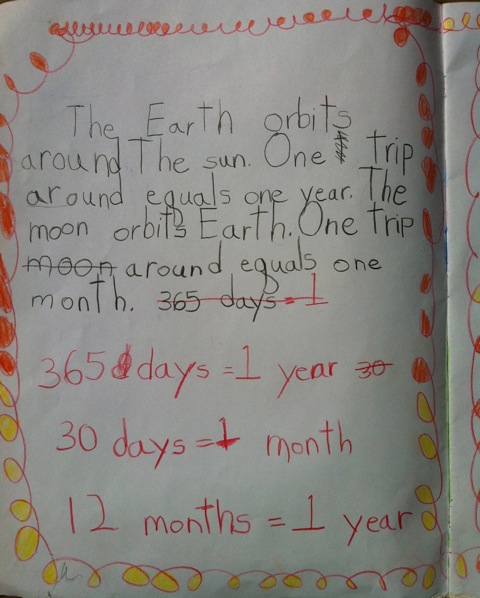 The Earth orbits
around The sun. One trip
around equals one year. The
moon orbits Earth. One trip
moon around equals one
month. 365 days = 1
365 days = 1 year 30
30 days = 1 month
12 months = 1 year